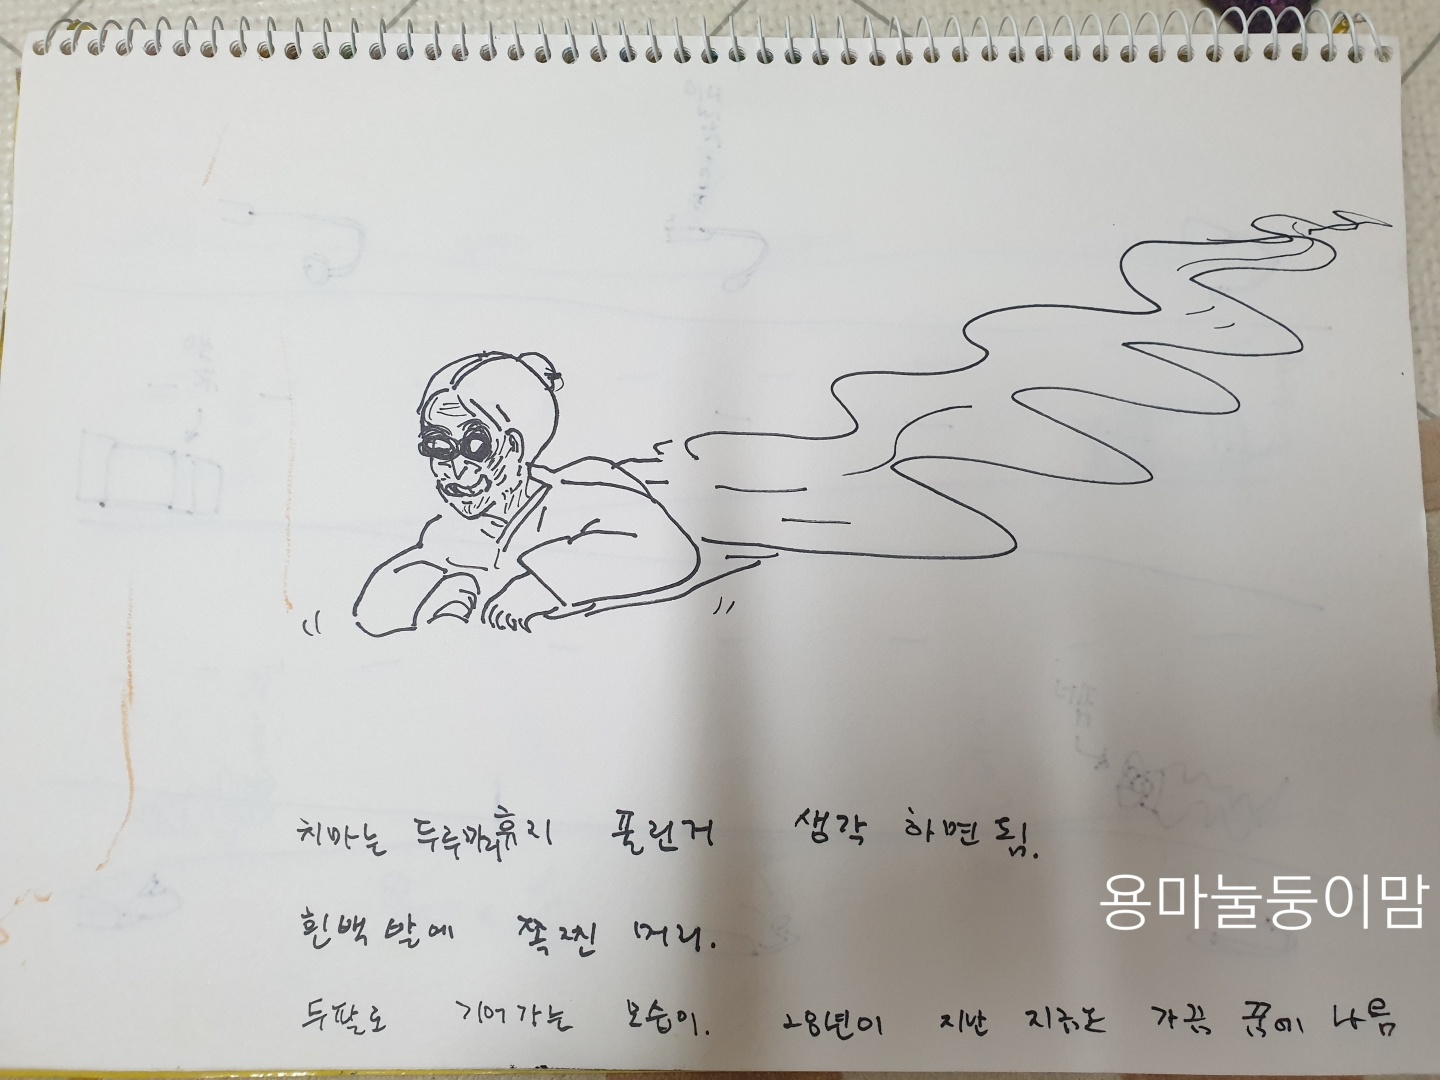 치마는 두루마리휴지 풀린거 생각 하면 됨.
흰백발에 쪽찐 머리.
두팔로 기어가는 모습이. 28년이 지난 지금도 가끔 꿈에 나옴
용마눌둥이맘